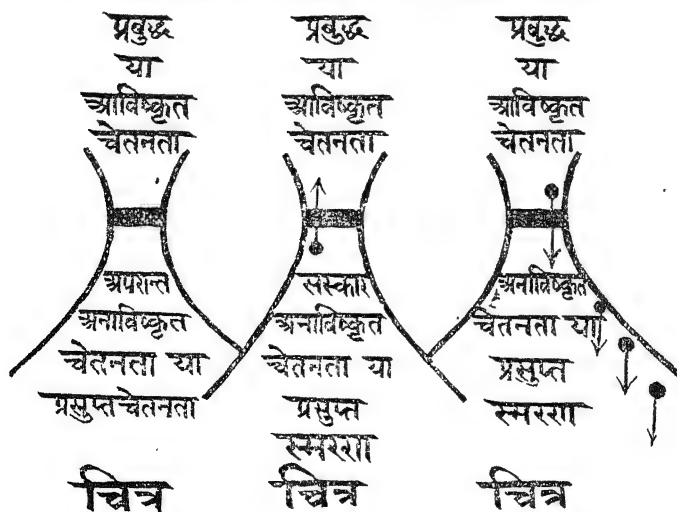 प्रबुद्ध
या
आविष्कृत
चेतनता
अपरान्त
अनाविष्कृत
चेतनता या
प्रसुप्त चेतनता
चित्र
प्रबुद्ध
या
आविष्कृत
चेतनता
सस्कार
अनाविष्कृत
चेतनता या
प्रसुप्त
स्मरण
चित्र
प्रबुद्ध
या
आविष्कृत
चेतनता
अनाविष्कृत
चेतनता या
प्रसुप्त
स्मरण
चित्र